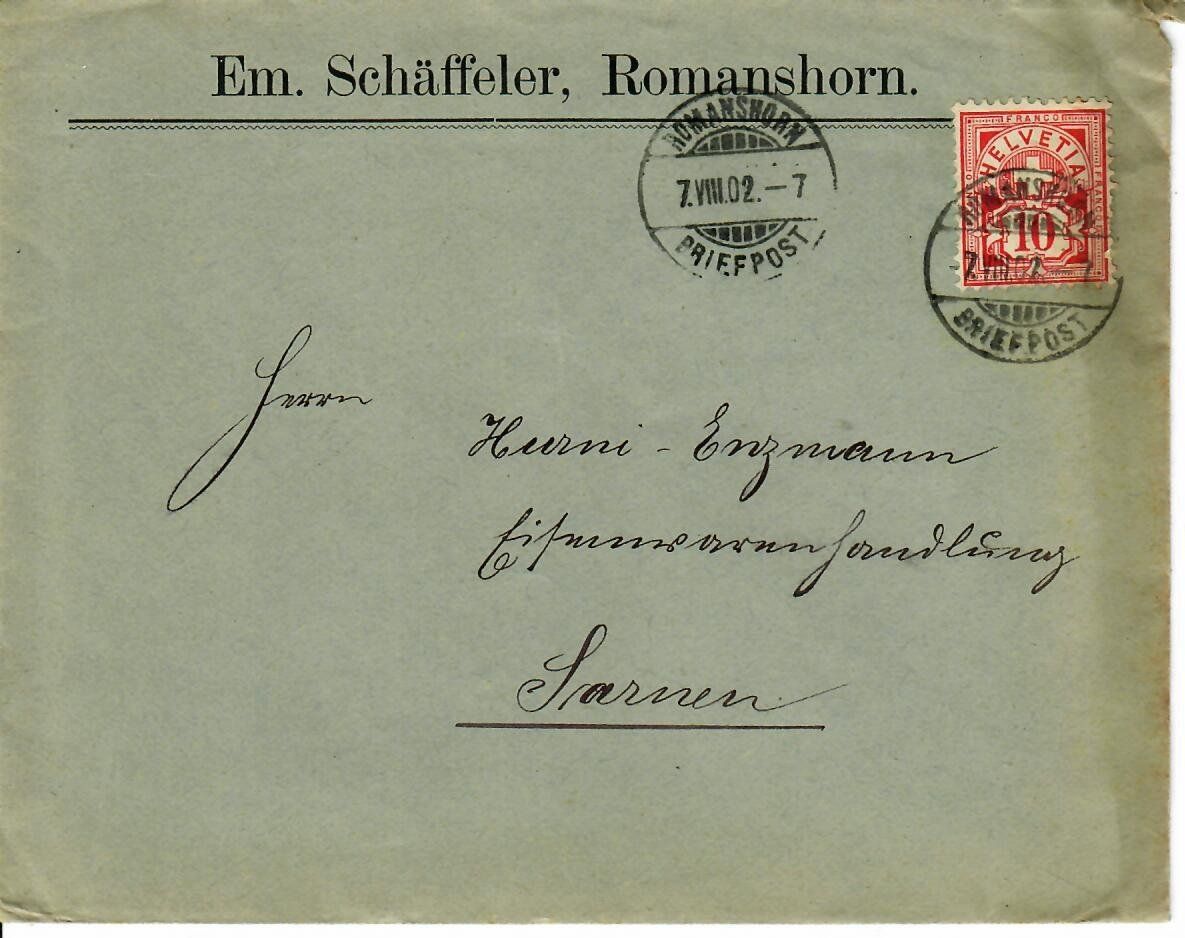 Em. Schäffeler, Romanshorn.
ROMANSHORN
7.VIII.02.—7
BRIEFPOST
FRANCO
HELVETIA
FRANCO
10
ROMANSHORN
7.VIII.02.—7
BRIEFPOST
Herrn
Hurni-Enzmann
Eisenwarenhandlung
Sarnen